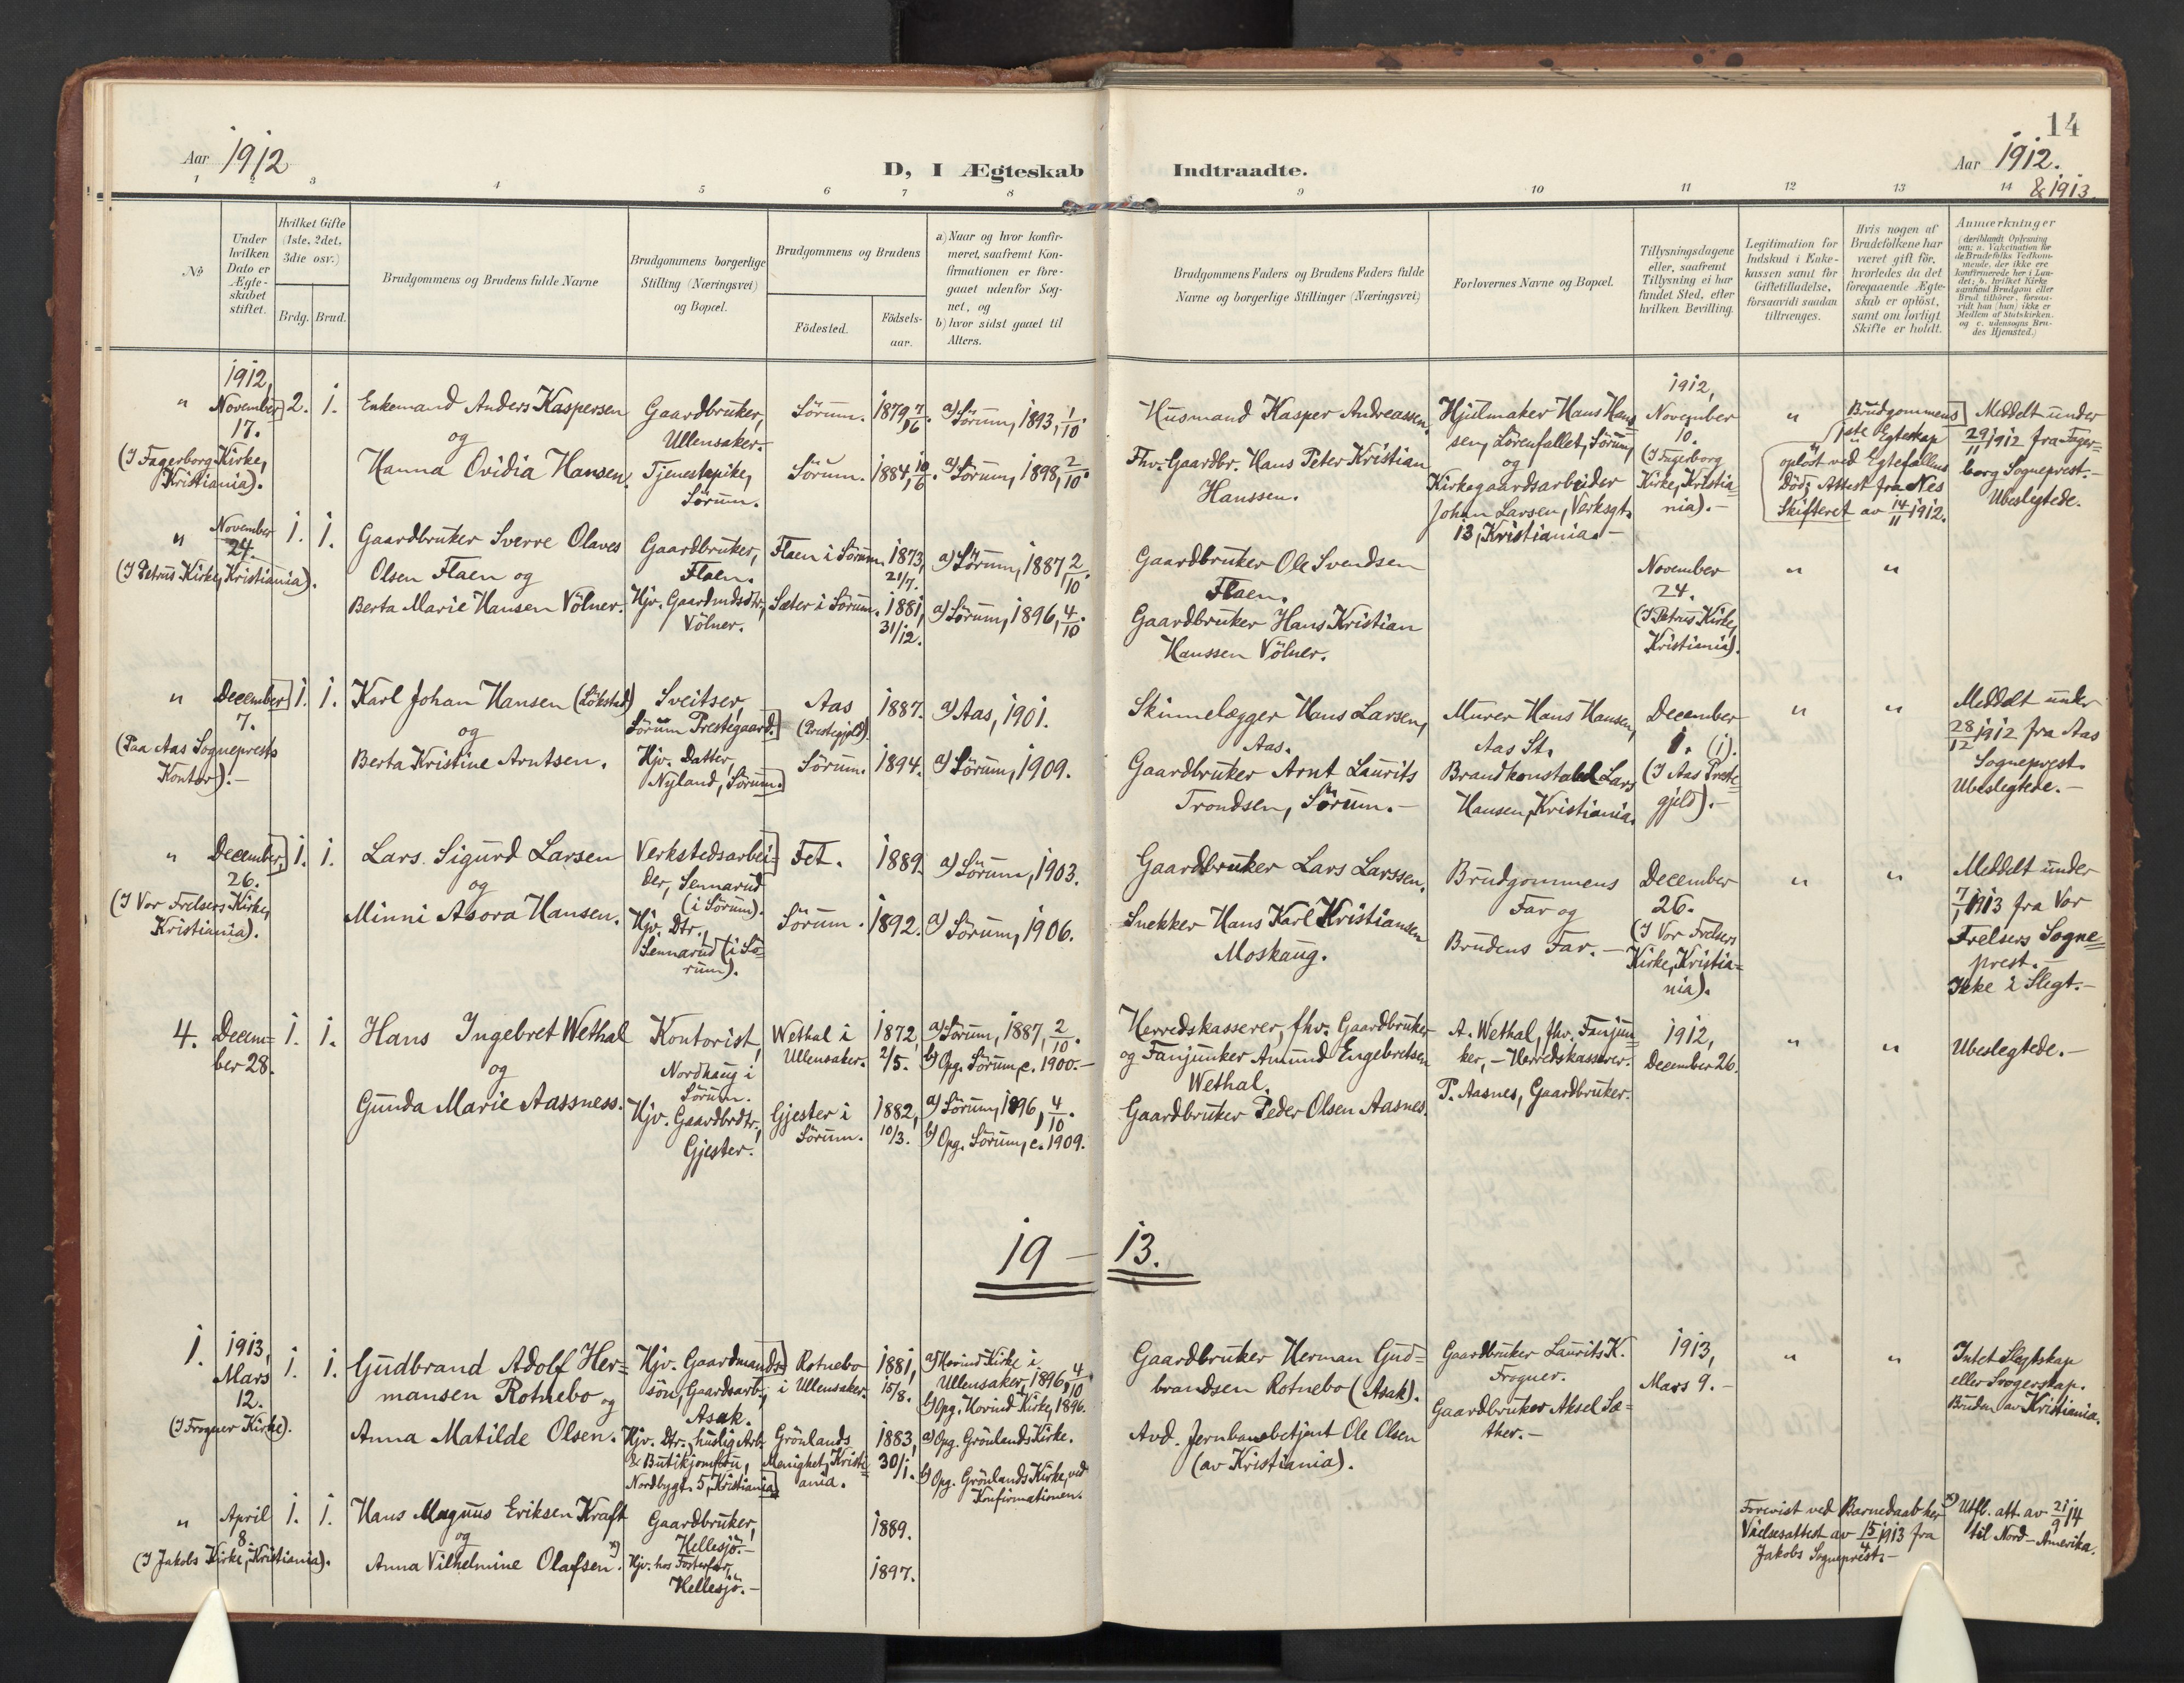 Aar 1912
D, I Ægteskab Indtraadte.
14
Aar 1912.
& 1913.
1 2 3 4 5 6 7 8 9 10 11 12 13 14
No
Under hvilken Dato er Ægte-skabet stiftet.
Hvilket Gifte (1ste, 2det, 3die osv.)
Brdg. Brud.
Brudgommens og Brudens fulde Navne
Brudgommens borgerlige Stilling (Næringsvei) og Bopæl.
Brudgommens og Brudens
Fødested.
Fødsels-aar.
a) Naar og hvor konfir-meret, saafremt Kon-firmationen er fore-gaaet udenfor Sog-net, og
b) hvor sidst gaaet til Alters.
Brudgommens Faders og Brudens Faders fulde Navne og borgerlige Stillinger (Næringsvei)
Forlovernes Navne og Bopæl.
Tillysningsdagene eller, saafremt Tillysning ei har fundet Sted, efter hvilken Bevilling.
Legitimation for Indskud i Enke-kassen samt for Giftetilladelse, forsaavidt saadan tiltrænges.
Hvis nogen af Brudefolkene har været gift før, hvorledes da det foregaaende Ægte-skab er opløst, samt om lovligt Skifte er holdt.
Anmærkninger
(deriblandt Oplysning om: a. Vakcination for de Brudefolks Vedkom-mende, der ikke ere konfirmerede her i Lan-det; b. hvilket Kirke samfund Brudgom eller Brud tilhører, forsaa-vidt han (hun) ikke er Medlem af Statskirken. og c. udensogns Bru-des Hjemsted.)
" 1912, November 17. (I Fagerborg Kirke, Kristiania).
2. 1.
Enkemand Anders Kaspersen
og
Hanna Ovidia Hansen.
Gaardbruker, Ullensaker.
Tjenestepike, Sörum.
Sörum. 1879, 7/16. a) Sörum, 1893, 1/10
Sörum. 1884, 10/6. a) Sörum, 1898, 2/10.
Husmand Kasper Andreassen.
Fhv. Gaardbr. Hans Peter Kristian
Hanssen.
Hjulmaker Hans Han=
sen, Lörenfallet, Sörum,
og
Kirkegaardsarbeider
Johan Larsen, Verksgt.
13, Kristiania.-
1912,
November
10.
(I Fagerborg
Kirke, Kristia=
nia).-
"
Brudgommens
1ste Egteskap
oplöst ved Egtefællens
Död; Attest fra Nes
Skifteret av 14/11 1912.
Meddelt under
29/11 1912 fra Fager=
borg Sogneprest.-
Ubeslegtede.
" November 24. (I Petrus Kirke, Kristiania).
1. 1.
Gaardbruker Sverre Olaves
Olsen Flaen og
Berta Marie Hansen Völner.
Gaardbruker,
Flaen.
Hjv. Gaardmdsdtr.,
Völner.
Flaen i Sörum, 1873, 21/7. a) Sörum, 1887 2/10.
Sæter i Sörum. 1881, 31/12. a) Sörum, 1896, 4/10.
Gaardbruker Ole Svendsen
Flaen.
Gaardbruker Hans Kristian
Hanssen Völner.
November
24.
(I Petrus Kirke,
Kristiania).
" "
" December 7. (Paa Aas Sogneprests Kontor).-
1. 1.
Karl Johan Hansen (Lökstad)
og
Berta Kristine Arntsen.
Sveitser,
Sörum Prestegaard.
Hjv. Datter,
Nyland, Sörum.
Aas (Prestegjeld) 1887. a) Aas, 1901.
Sörum. 1894. a) Sörum, 1909.
Skinnelægger Hans Larsen,
Aas.
Gaardbruker Arnt Laurits
Trondsen, Sörum.-
Murer Hans Hansen,
Aas St.
Brandkonstabel Lars
Hansen, Kristiania.
December
1. (i).
(I Aas Preste=
gjeld).-
" "
Meddelt under
28/12 1912 fra Aas
Sogneprest.
Ubeslegtede.-
" December 26. (I Vor Frelsers Kirke, Kristiania).
1. 1.
Lars Sigurd Larsen
og
Minni Asora Hansen.
Verkstedsarbei=
der, Sennarud
(i Sörum).
Hjv. Dtr.,
Sennarud (i Sö=
rum).
Fet. 1889. a) Sörum, 1903.
Sörum. 1892. a) Sörum, 1906.
Gaardbruker Lars Larssen.
Snekker Hans Karl Kristiansen
Moskaug.
Brudgommens
Far og
Brudens Far.-
December
26.
(I Vor Frelsers
Kirke, Kristia=
nia).
" "
Meddelt under
7/1 1913 fra Vor
Frelsers Sogne=
prest.-
Ikke i Slegt.-
4. Decem=
ber 28.
1. 1.
Hans Ingebret Wethal
og
Gunda Marie Aassness.
Kontorist,
Nordhaug i
Sörum.
Hjv. Gaardbrdtr.,
Gjester.
Wethal i Ullensaker. 1872, 2/5. a) Sörum, 1887, 2/10.
b) Opg. Sörum, c. 1900.-
Gjester i Sörum. 1882, 10/3. a) Sörum, 1896, 4/10.
b) Opg. Sörum, c. 1909.
Herredskasserer, fhv. Gaardbruker
og Fanjunker Amund Engebretsen
Wethal.
Gaardbruker Peder Olsen Aasnes.
A. Wethal, fhv. Fanjun=
ker,- Herredskasserer.
P. Aasnes, Gaardbruker.
1912,
December 26.
" "
Ubeslegtede.-
19 - 13.
1. 1913, Mars 12. (I Frogner Kirke).
1. 1.
Gudbrand Adolf Her=
mansen Rotnebo og
Anna Matilde Olsen.
Hjv. Gaardmands=
sön, Gaardsarb.,
Asak.
Hjv. Dtr., huslig Arb.
& Butikjomfru,
Nordbygt. 5, Kristiania
Rotnebo i Ullensaker. 1881, 15/8. a) Hovind Kirke i
Ullensaker, 1896, 4/10
b) Opg. Hovind Kirke, 1896.
Grönlands
Menighet, Kristi=
ania. 1883, 30/1. a) Opg. Grönlands Kirke.
b) Opg. Grönlands Kirke, ved
Konfirmationen.
Gaardbruker Herman Gud=
brandsen Rotnebo (Asak).
Avd. Jernbanebetjent Ole Olsen
(av Kristiania).
Gaardbruker Laurits K.
Frogner.
Gaardbruker Aksel Sæ=
ther.-
1913,
Mars 9.-
" "
Intet Slegtskap
eller Svogerskap.
Bruden av Kristiania.
" April 8. (I Jakobs Kirke, Kristiania).
1. 1.
Hans Magnus Eriksen Kraft
og
Anna Vilhelmine Olafsen. x)
Gaardbruker,
Hellesjö.-
Hjv. hos Fosterfar,
Hellesjö.-
1889.
1897.
Forevist ved Barnedaab her
Vielsesattest av 15/4 1913 fra
Jakobs Sogneprest.-
x) Utfl. att. av 21/9 14
til Nord-Amerika.